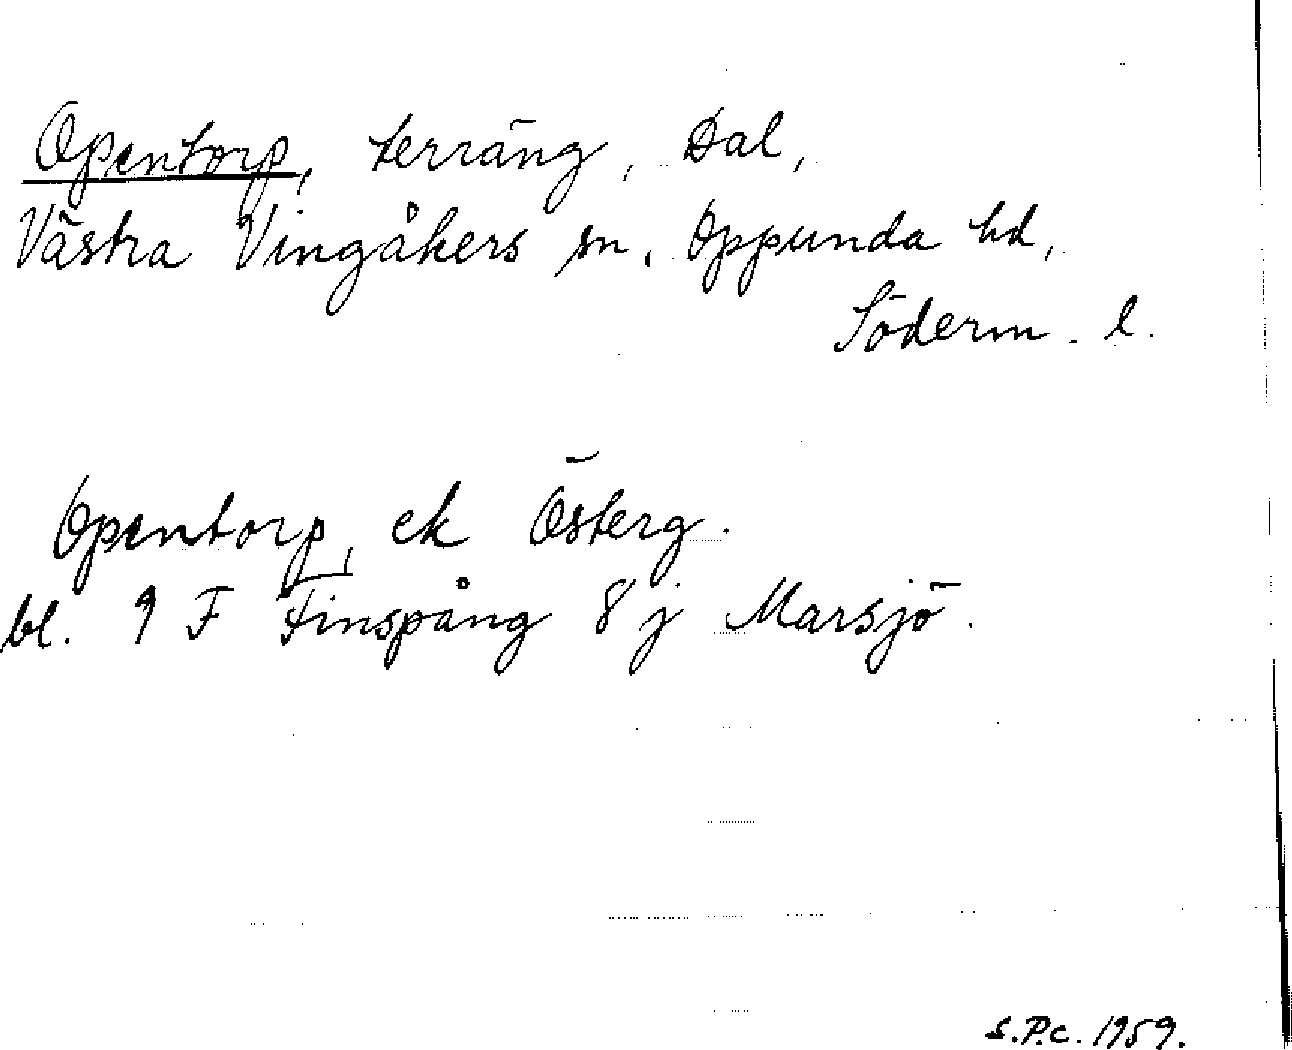 Opentorp, terräng, Dal,
Västra Vingåkers sn. Oppunda hd,
Söderm. l.
Opentorp, ek Österg.
bl. 9 F Finspång 8 j Marsjö.
S.P.C. 1959.